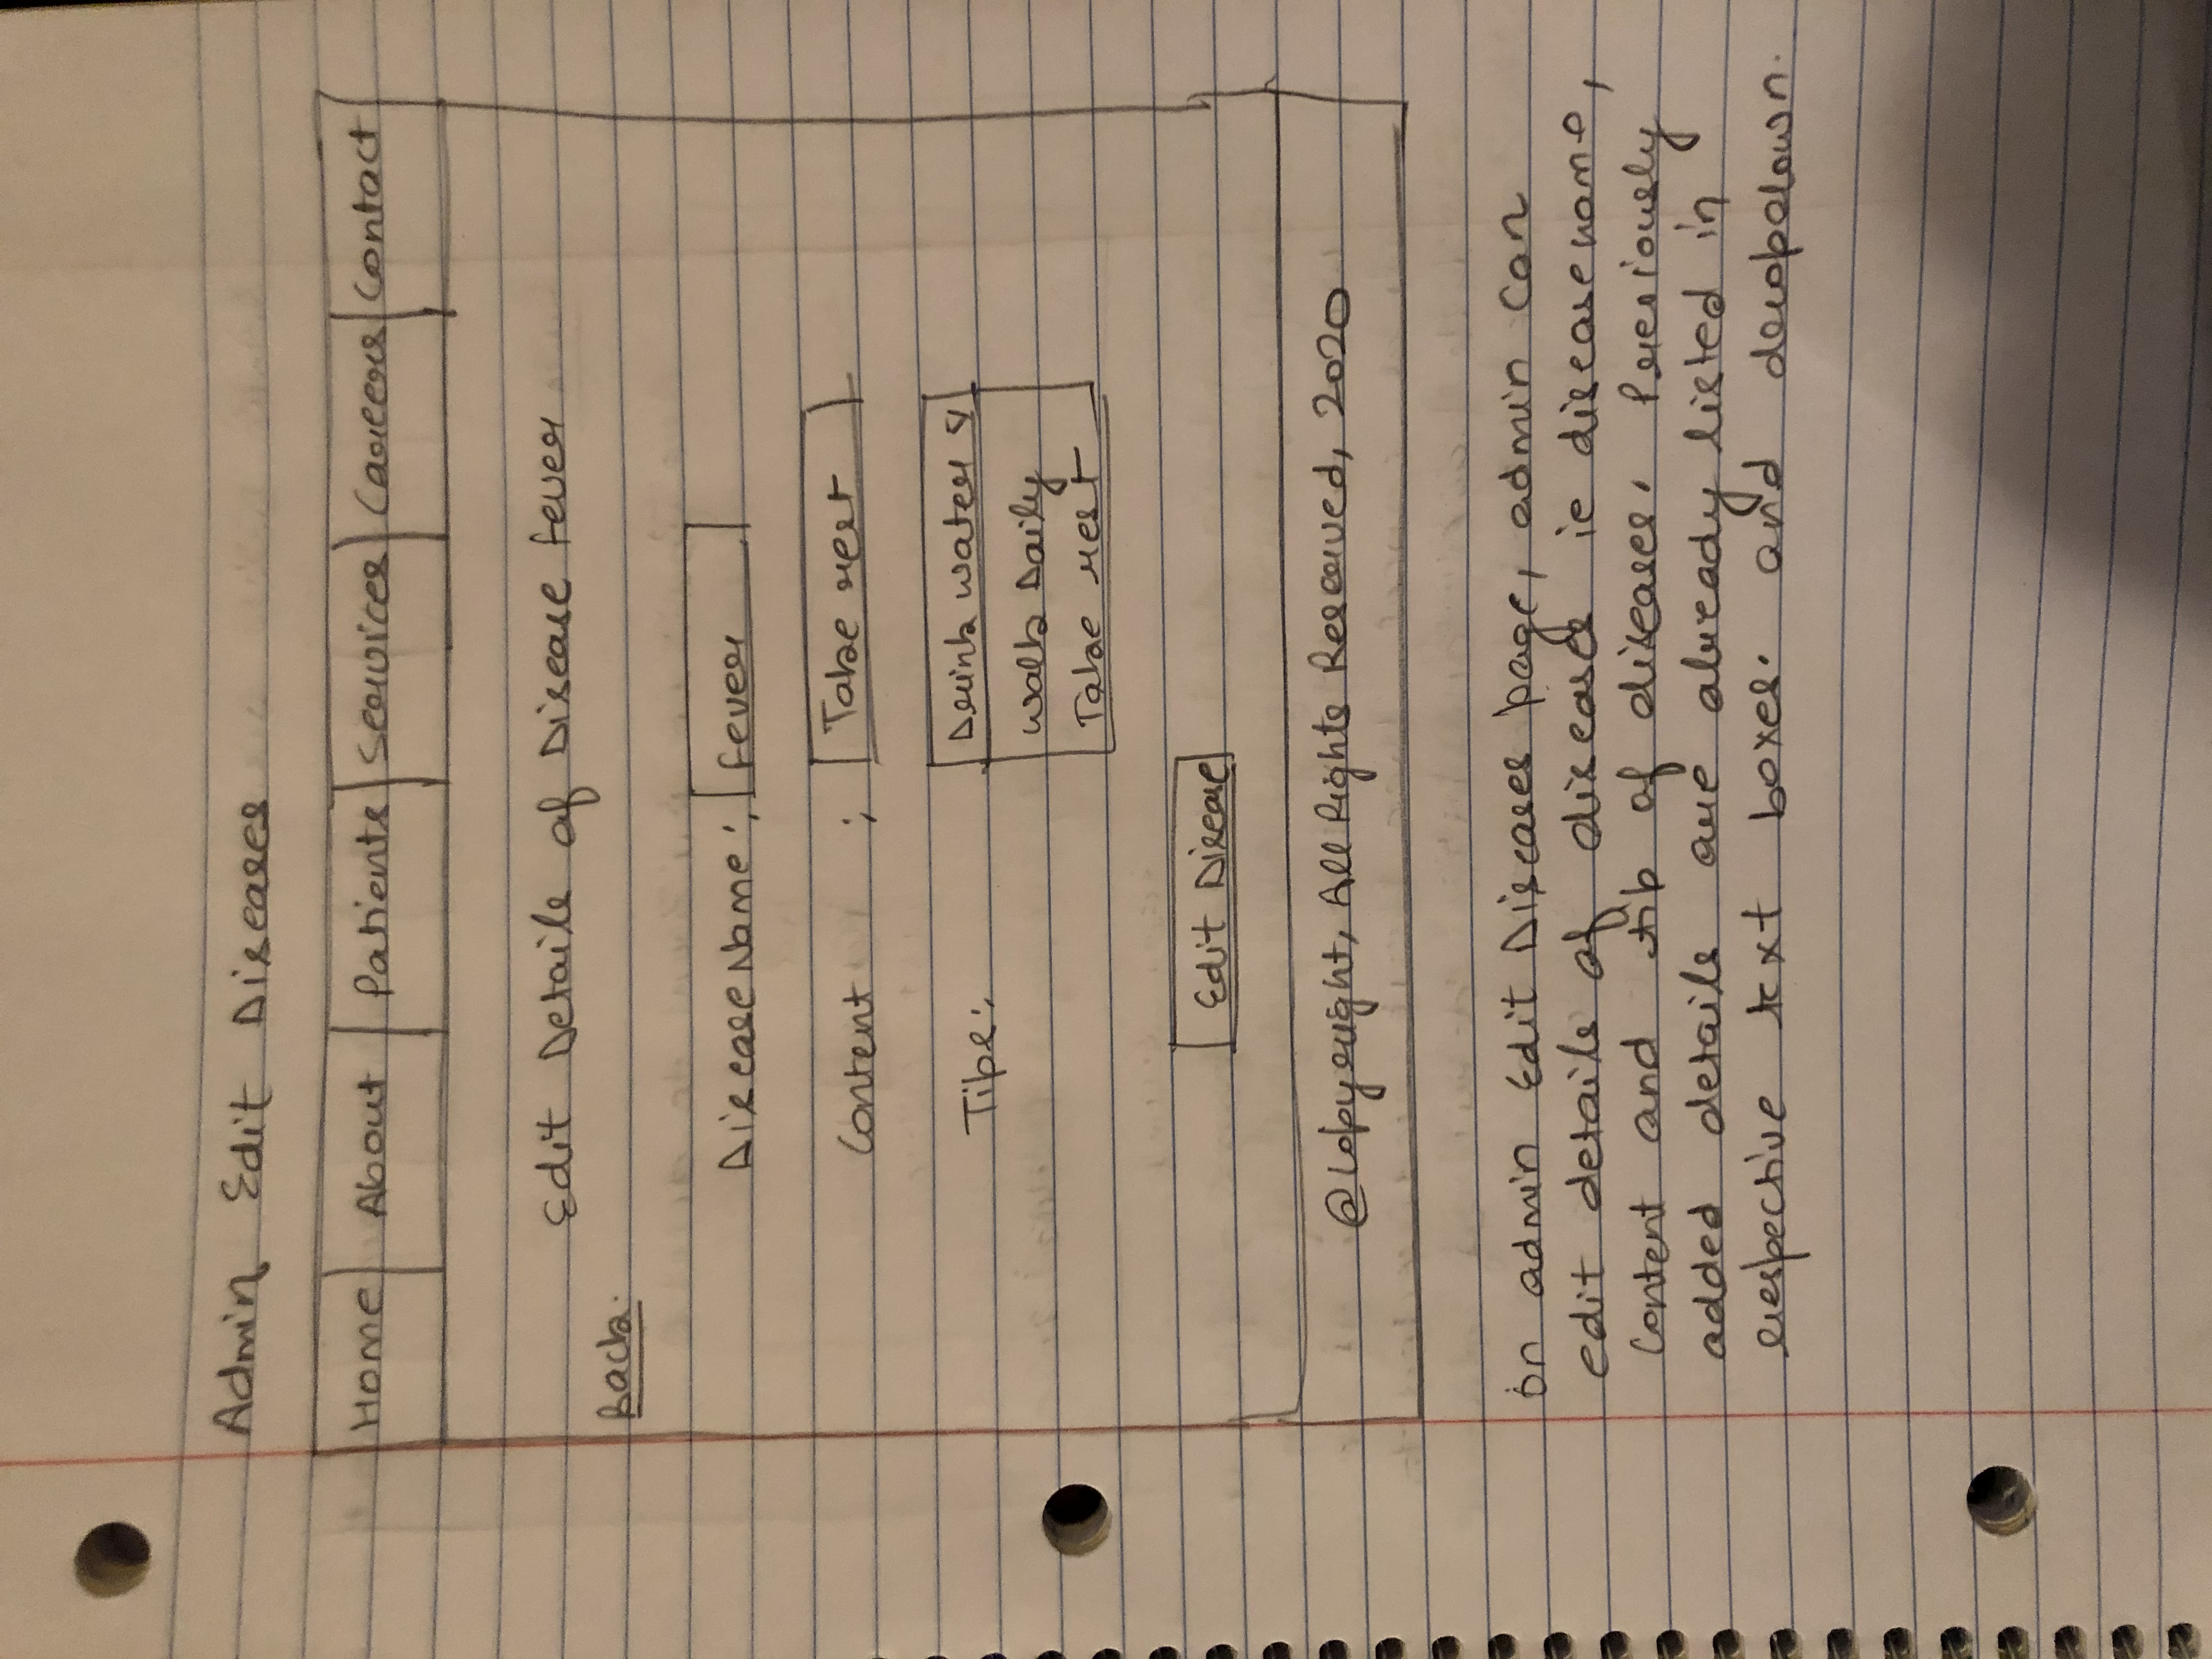 Admin Edit Diseases
Home About Patients Services Careers Contact
Edit Details of Disease fever
Back.
Disease Name: fever
Content : Take rest
Tips: Drink water
Walk Daily
Take rest
Edit Disease
@Copyright, All Rights Reserved, 2020
On admin Edit Diseases page, admin can
edit details of diseases ie diseasename,
Content and tip of diseases. Previously
added details are already listed in
respective text boxes. and dropdown.